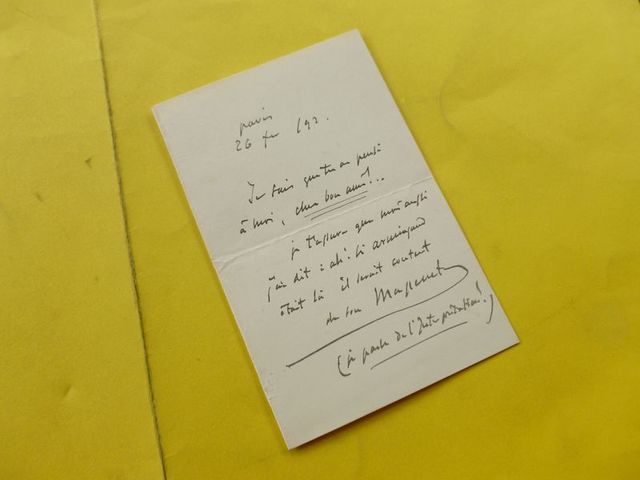 paris
26 xr 192.
Je sais que tu as pensé
à moi, cher bon ami!...
je t'assure que moi aussi
j'ai dit : ah! si armingaud
était là il serait content
de son Massenet
(je parle de l'Interprétation!)